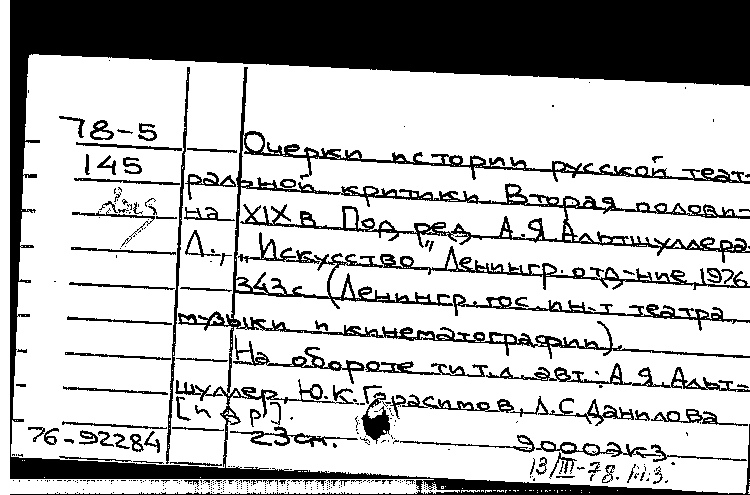 78-5
145
Очерки истории русской теат-
ральной критики Вторая полови-
на XIX в. Под ред. А.Я Альтшуллера
Л., „Искусство", Ленингр. отд-ние, 1976
343 с. (Ленингр. гос. ин-т театра,
музыки и кинематографии).
На обороте тит. л. авт.: А.Я. Альт-
шуллер, Ю.К. Герасимов, Л.С. Данилова
[и др].
76-92284 23 см. 9000 экз.
13/III-78. М.З.